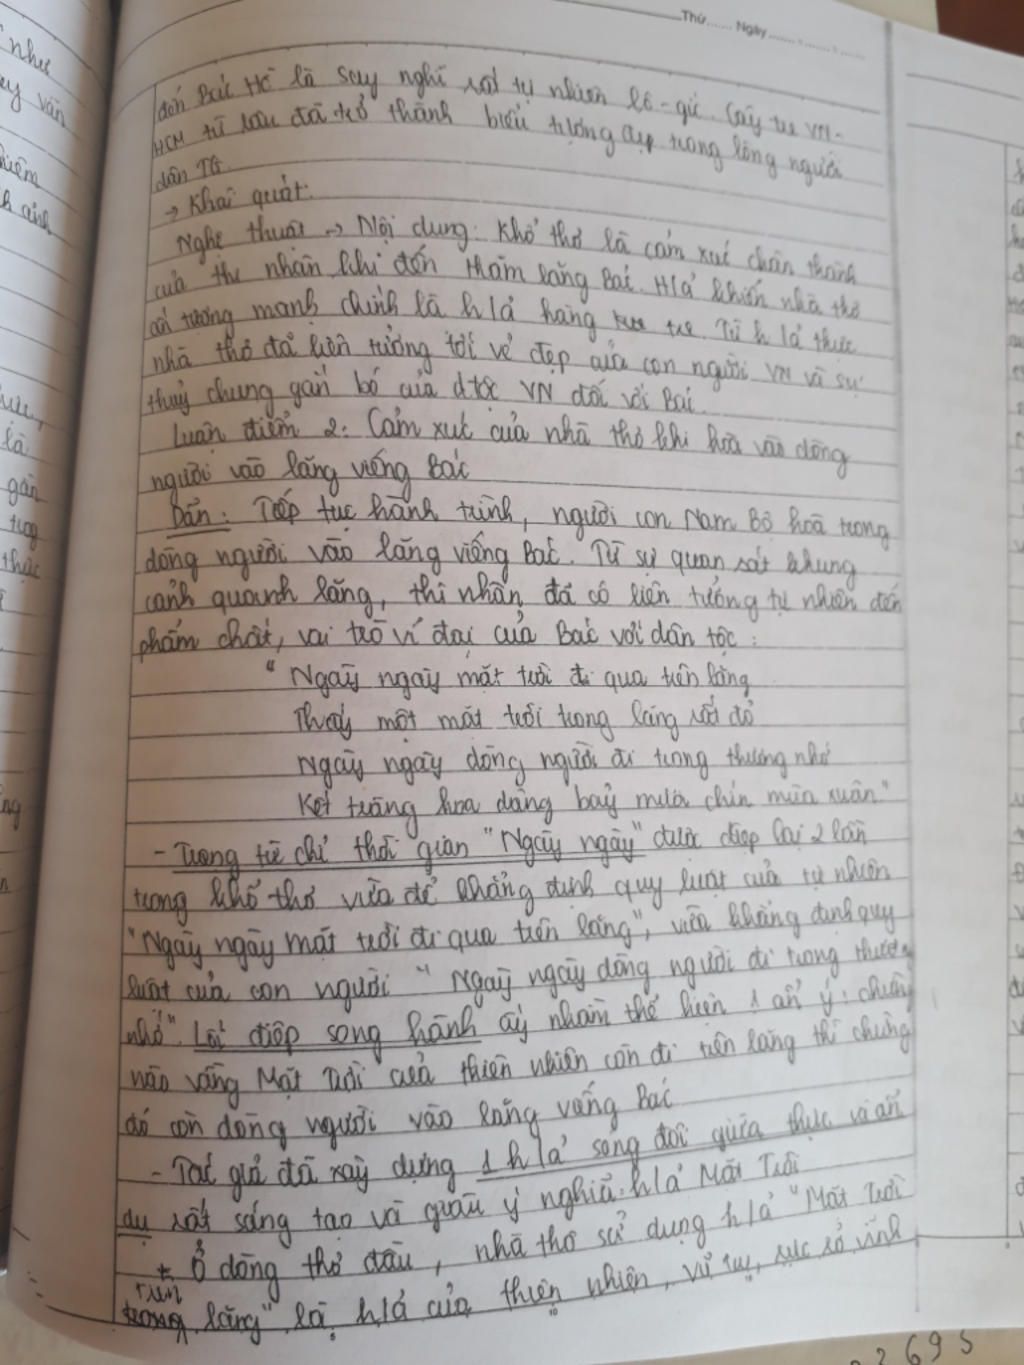 Thứ...... Ngày...... . ...... . ......
đến Bác Hồ là suy nghĩ rất tự nhiên lô-gic. Cây tre VN-
HCM từ lâu đã trở thành biểu tượng đẹp trong lòng người
dân TG.
→ Khái quát:
Nghệ thuật → Nội dung: Khổ thơ là cảm xúc chân thành
của thi nhân khi đến thăm lăng Bác. H/ả khiến nhà thơ
ấn tượng mạnh chính là h/ả hàng tre. Từ h/ả thực
nhà thơ đã liên tưởng tới vẻ đẹp của con người VN và sự
thuỷ chung gắn bó của d.tộc VN đối với Bác.
Luận điểm 2: Cảm xúc của nhà thơ khi hoà vào dòng
người vào lăng viếng Bác
Dẫn: Tiếp tục hành trình, người con Nam Bộ hoà trong
dòng người vào lăng viếng Bác. Từ sự quan sát khung
cảnh quanh lăng, thi nhân đã có liên tưởng tự nhiên đến
phẩm chất, vai trò vĩ đại của Bác với dân tộc:
"Ngày ngày mặt trời đi qua trên lăng
Thấy một mặt trời trong lăng rất đỏ
Ngày ngày dòng người đi trong thương nhớ
Kết tràng hoa dâng bảy mươi chín mùa xuân"
- Trạng từ chỉ thời gian "Ngày ngày" được điệp lại 2 lần
trong khổ thơ vừa để khẳng định quy luật của tự nhiên
"Ngày ngày mặt trời đi qua trên lăng", vừa khẳng định quy
luật của con người "Ngày ngày dòng người đi trong thương
nhớ". Lối điệp song hành ấy nhằm thể hiện 1 ẩn ý: chừng
nào vầng Mặt Trời của thiên nhiên còn đi trên lăng thì chừng
đó còn dòng người vào lăng viếng Bác
- Tác giả đã xây dựng 1 h/ả song đôi giữa thực và ẩn
dụ rất sáng tạo và giàu ý nghĩa: h/ả Mặt Trời
+ Ở dòng thơ đầu, nhà thơ sử dụng h/ả "Mặt Trời
trên lăng" là h/ả của thiên nhiên, vũ trụ,
như
vấn
cảnh
là
gắn
thực
695